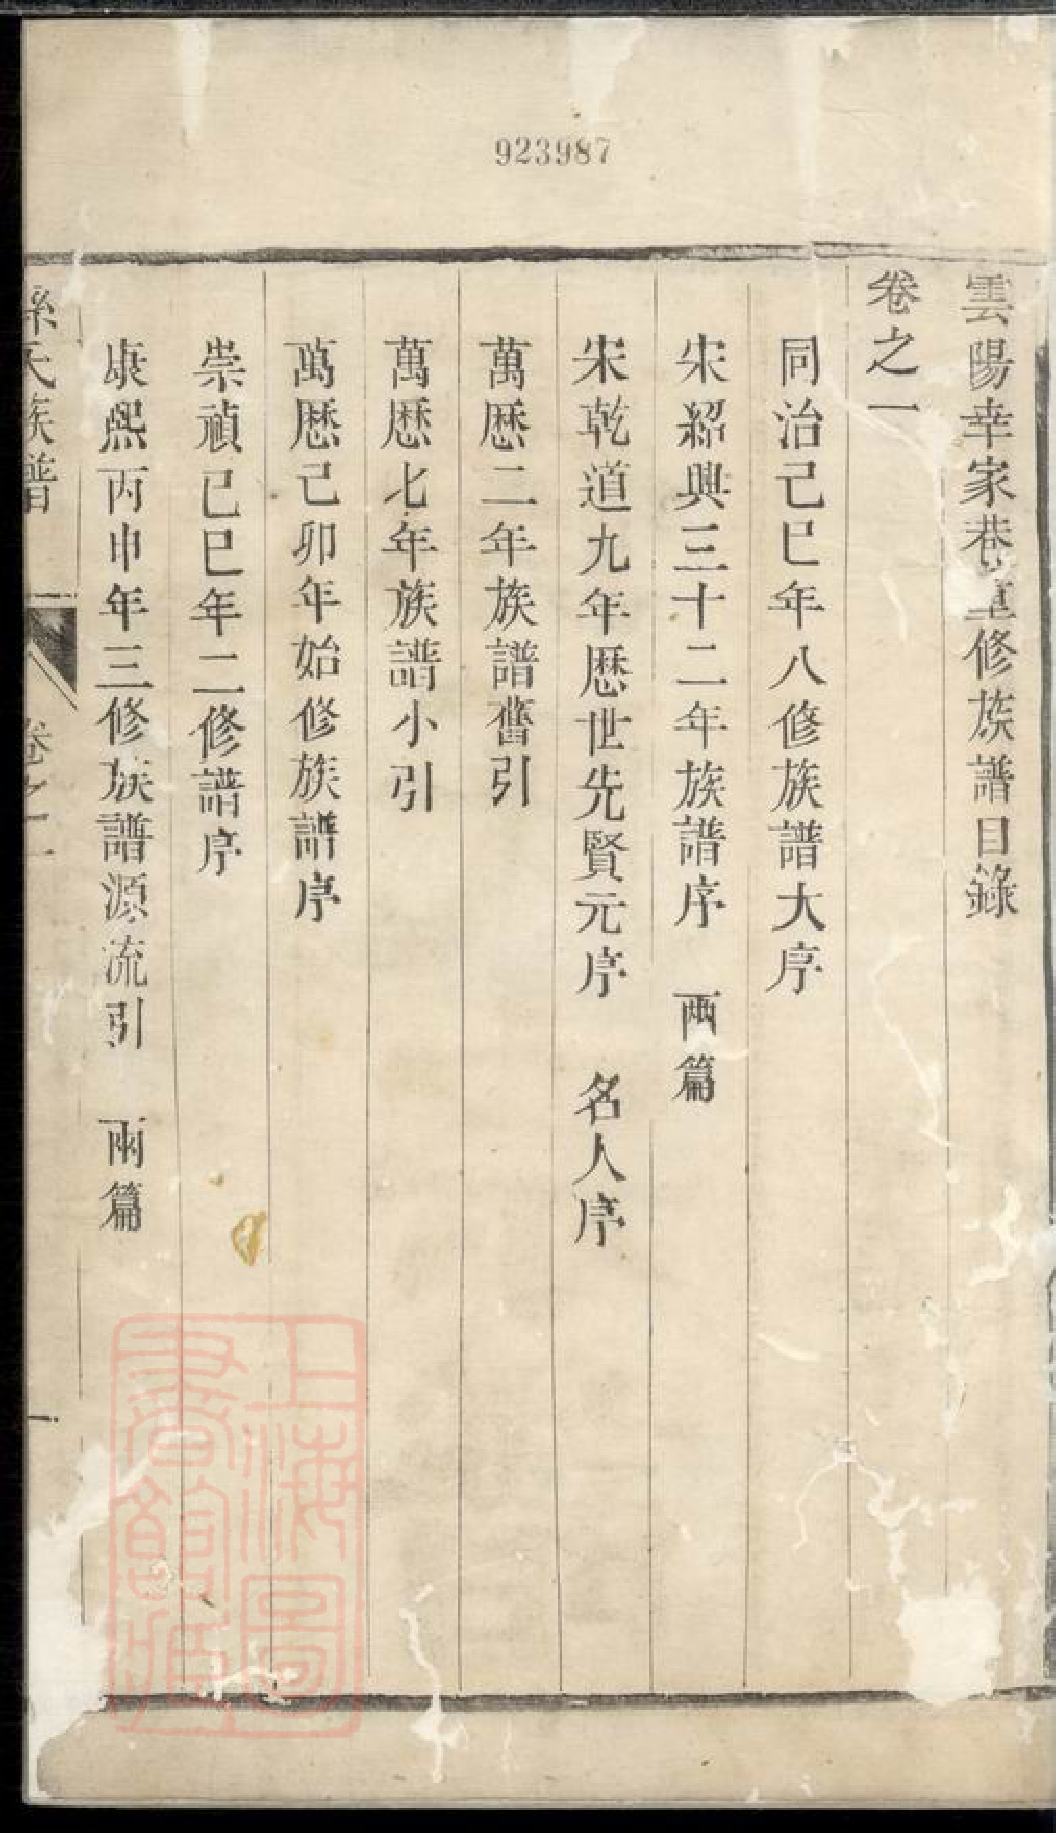 923987
雲陽幸家巷重修族譜目錄
卷之一
同治己巳年八修族譜大序
宋紹興三十二年族譜序 兩篇
宋乾道九年歷世先賢元序 名人序
萬歷二年族譜舊引
萬歷七年族譜小引
萬歷己卯年始修族譜序
崇禎己巳年二修譜序
康熙丙申年三修族譜源流引 兩篇
孫氏族譜 卷之一 一
上海圖
書館藏